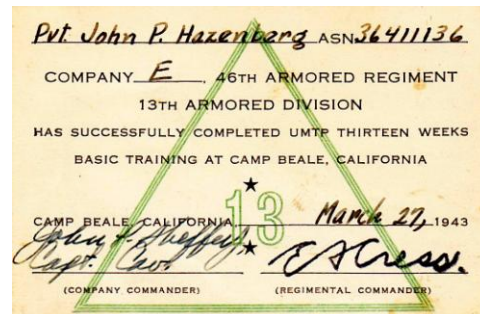 Pvt. John P. Hazenberg ASN 36411136
COMPANY E, 46TH ARMORED REGIMENT
13TH ARMORED DIVISION
HAS SUCCESSFULLY COMPLETED UMTP THIRTEEN WEEKS
BASIC TRAINING AT CAMP BEALE, CALIFORNIA
13
CAMP BEALE, CALIFORNIA March 27, 1943
John P. Sheffey
Capt. Cav. E A Cress.
(COMPANY COMMANDER) (REGIMENTAL COMMANDER)